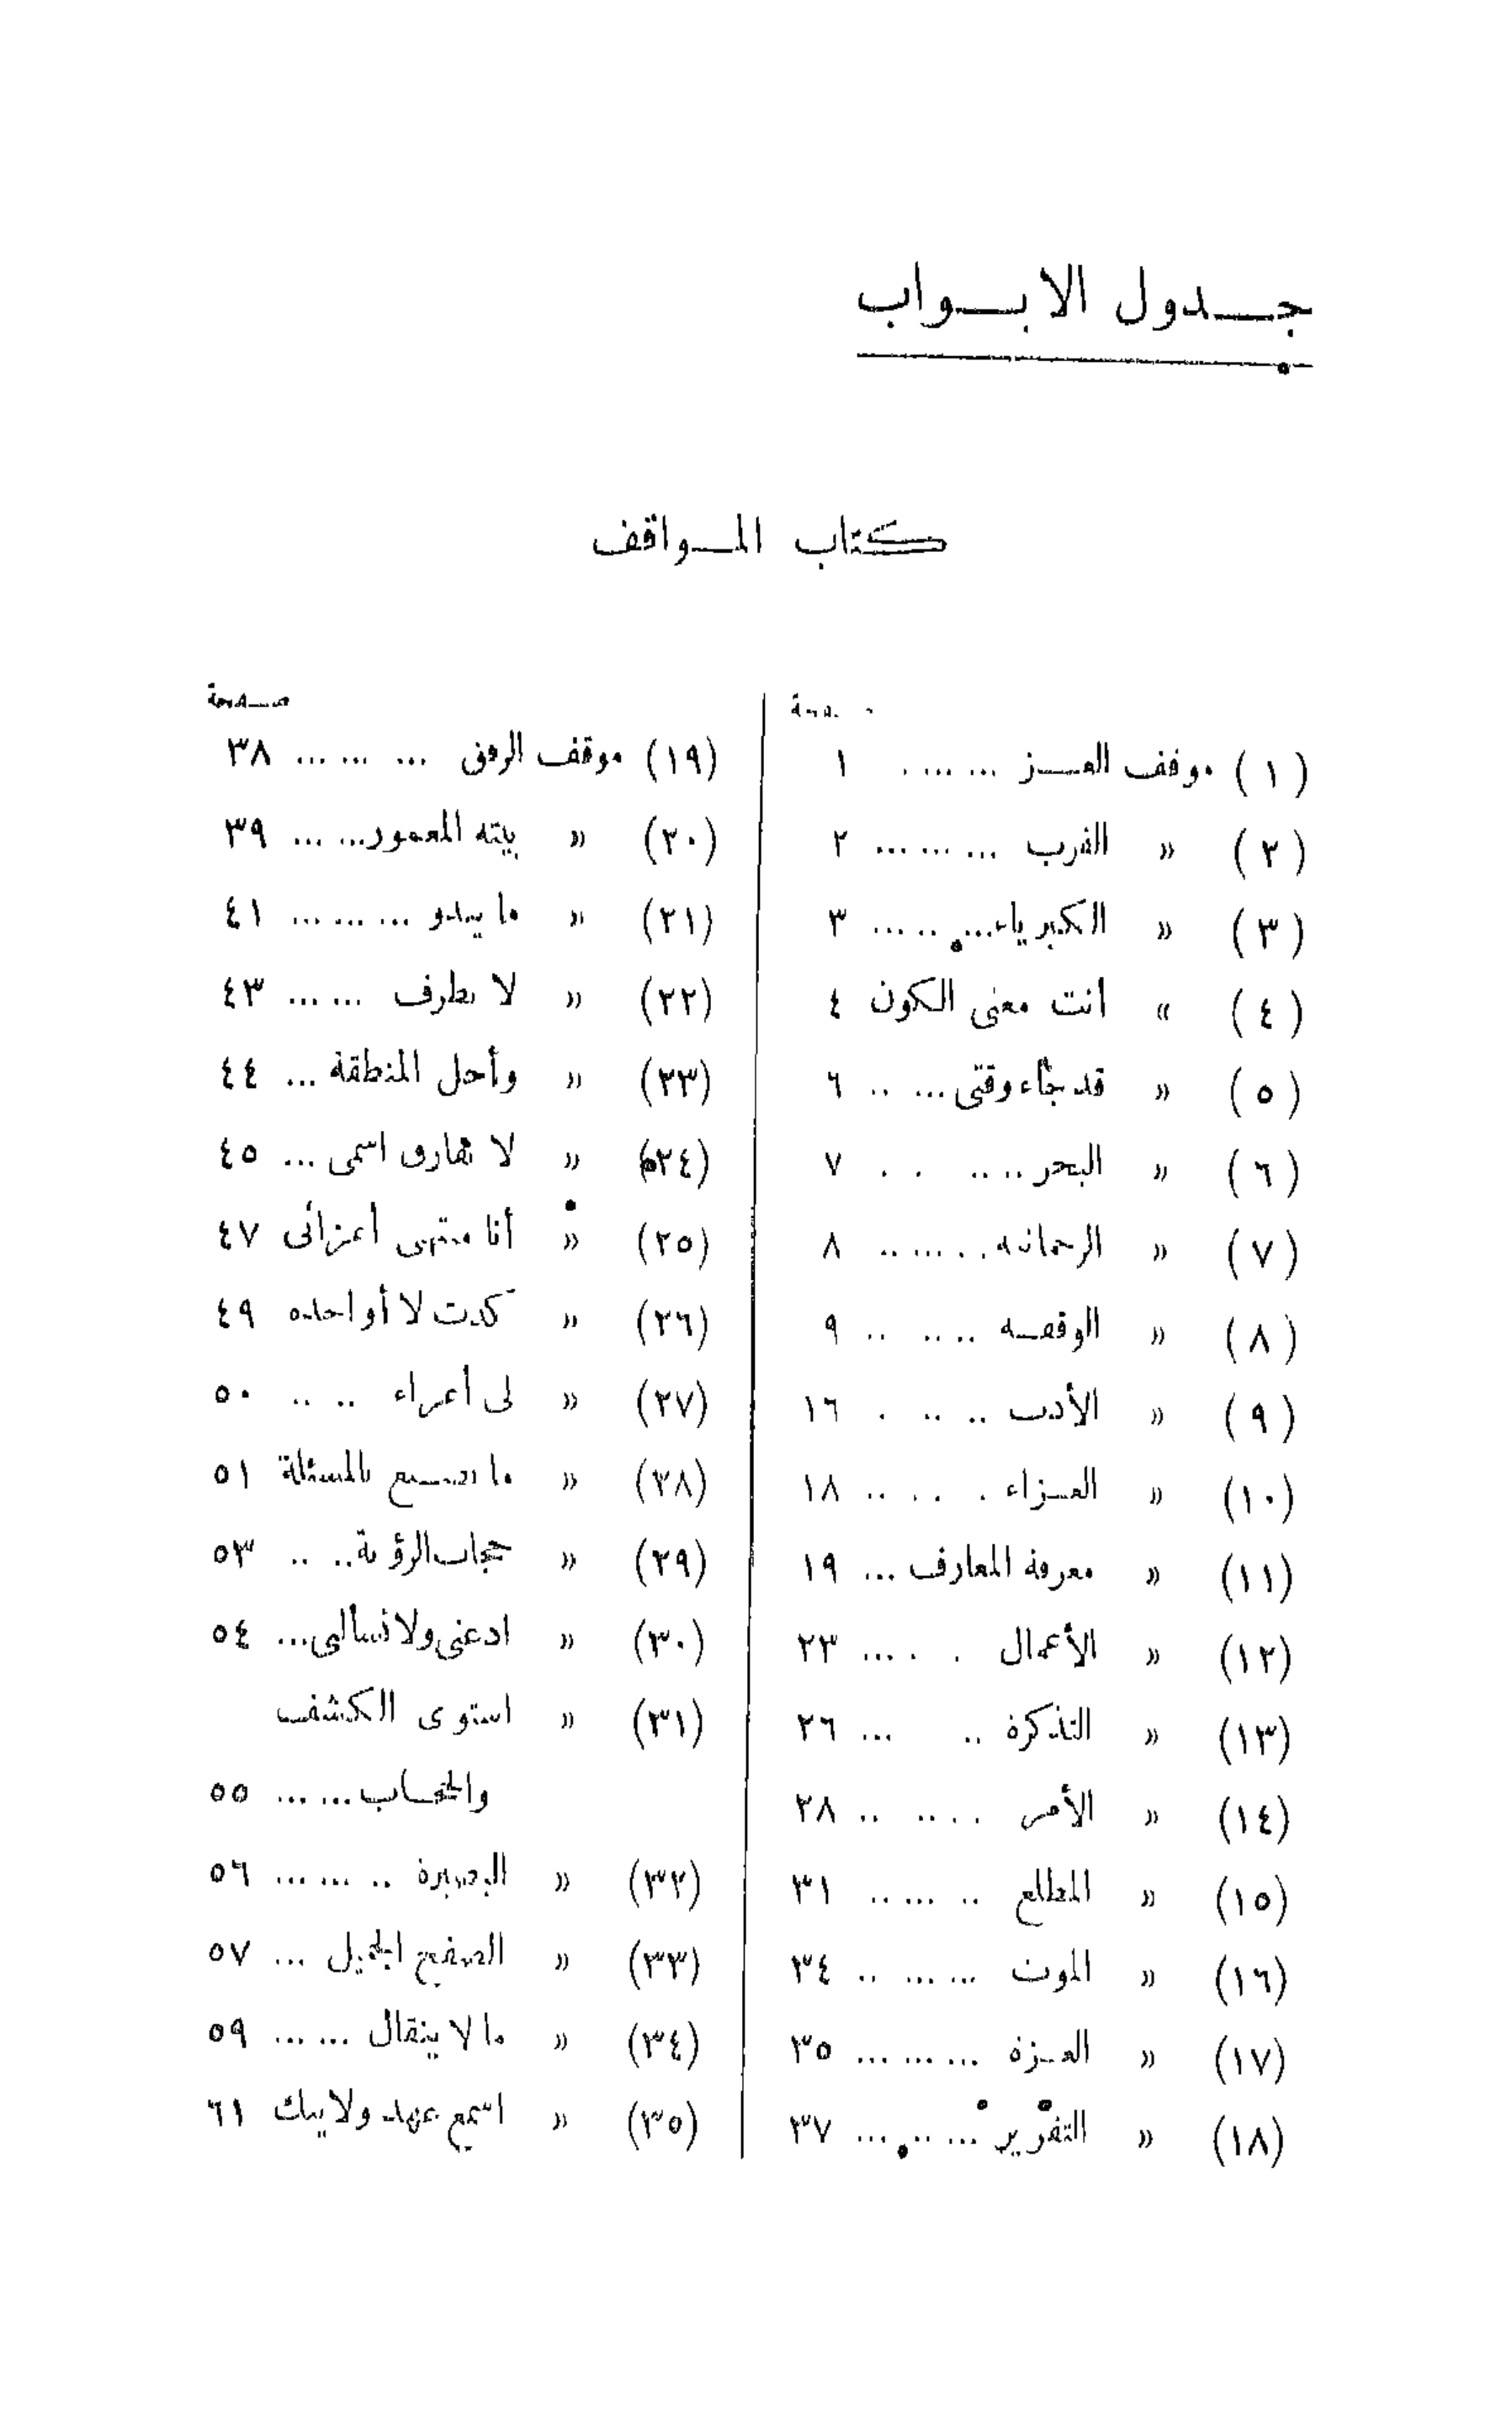 جدول الابواب
كتاب المواقف
صفحة
(١) موقف العز ... ... ١
(٢) » القرب ... ... ... ٢
(٣) » الكبرياء ... ... ... ٣
(٤) » أنت معنى الكون ٤
(٥) » قد جاء وقتى ... ... ٦
(٦) » البحر ... ... ... ٧
(٧) » الرحمانية ... ... ... ٨
(٨) » الوقفة ... ... ... ٩
(٩) » الأدب ... ... ... ١٦
(١٠) » العزاء ... ... ... ١٨
(١١) » معرفة المعارف ... ١٩
(١٢) » الأعمال ... ... ٢٣
(١٣) » التذكرة ... ... ٢٦
(١٤) » الأمر ... ... ... ٢٨
(١٥) » المطلع ... ... ... ٣١
(١٦) » الموت ... ... ... ٣٤
(١٧) » العزة ... ... ... ٣٥
(١٨) » التقرير ... ... ... ٣٧
صفحة
(١٩) موقف الرفق ... ... ... ٣٨
(٢٠) » بيته المعمور ... ... ٣٩
(٢١) » ما يبدو ... ... ... ٤١
(٢٢) » لا تطرف ... ... ٤٣
(٢٣) » وأحل المنطقة ... ٤٤
(٢٤) » لا تفارق اسمى ... ٤٥
(٢٥) » أنا منتهى أعزائى ٤٧
(٢٦) » كدت لا أواخذه ٤٩
(٢٧) » لى أعزاء ... ... ٥٠
(٢٨) » ما تصنع بالمسئلة ٥١
(٢٩) » حجاب الرؤية ... ... ٥٣
(٣٠) » ادعنى ولا تسألنى ... ٥٤
(٣١) » استوى الكشف
والحجاب ... ... ٥٥
(٣٢) » البصيرة ... ... ... ٥٦
(٣٣) » الصفح الجميل ... ٥٧
(٣٤) » ما لا ينقال ... ... ٥٩
(٣٥) » اسمع عهد ولايتك ٦١